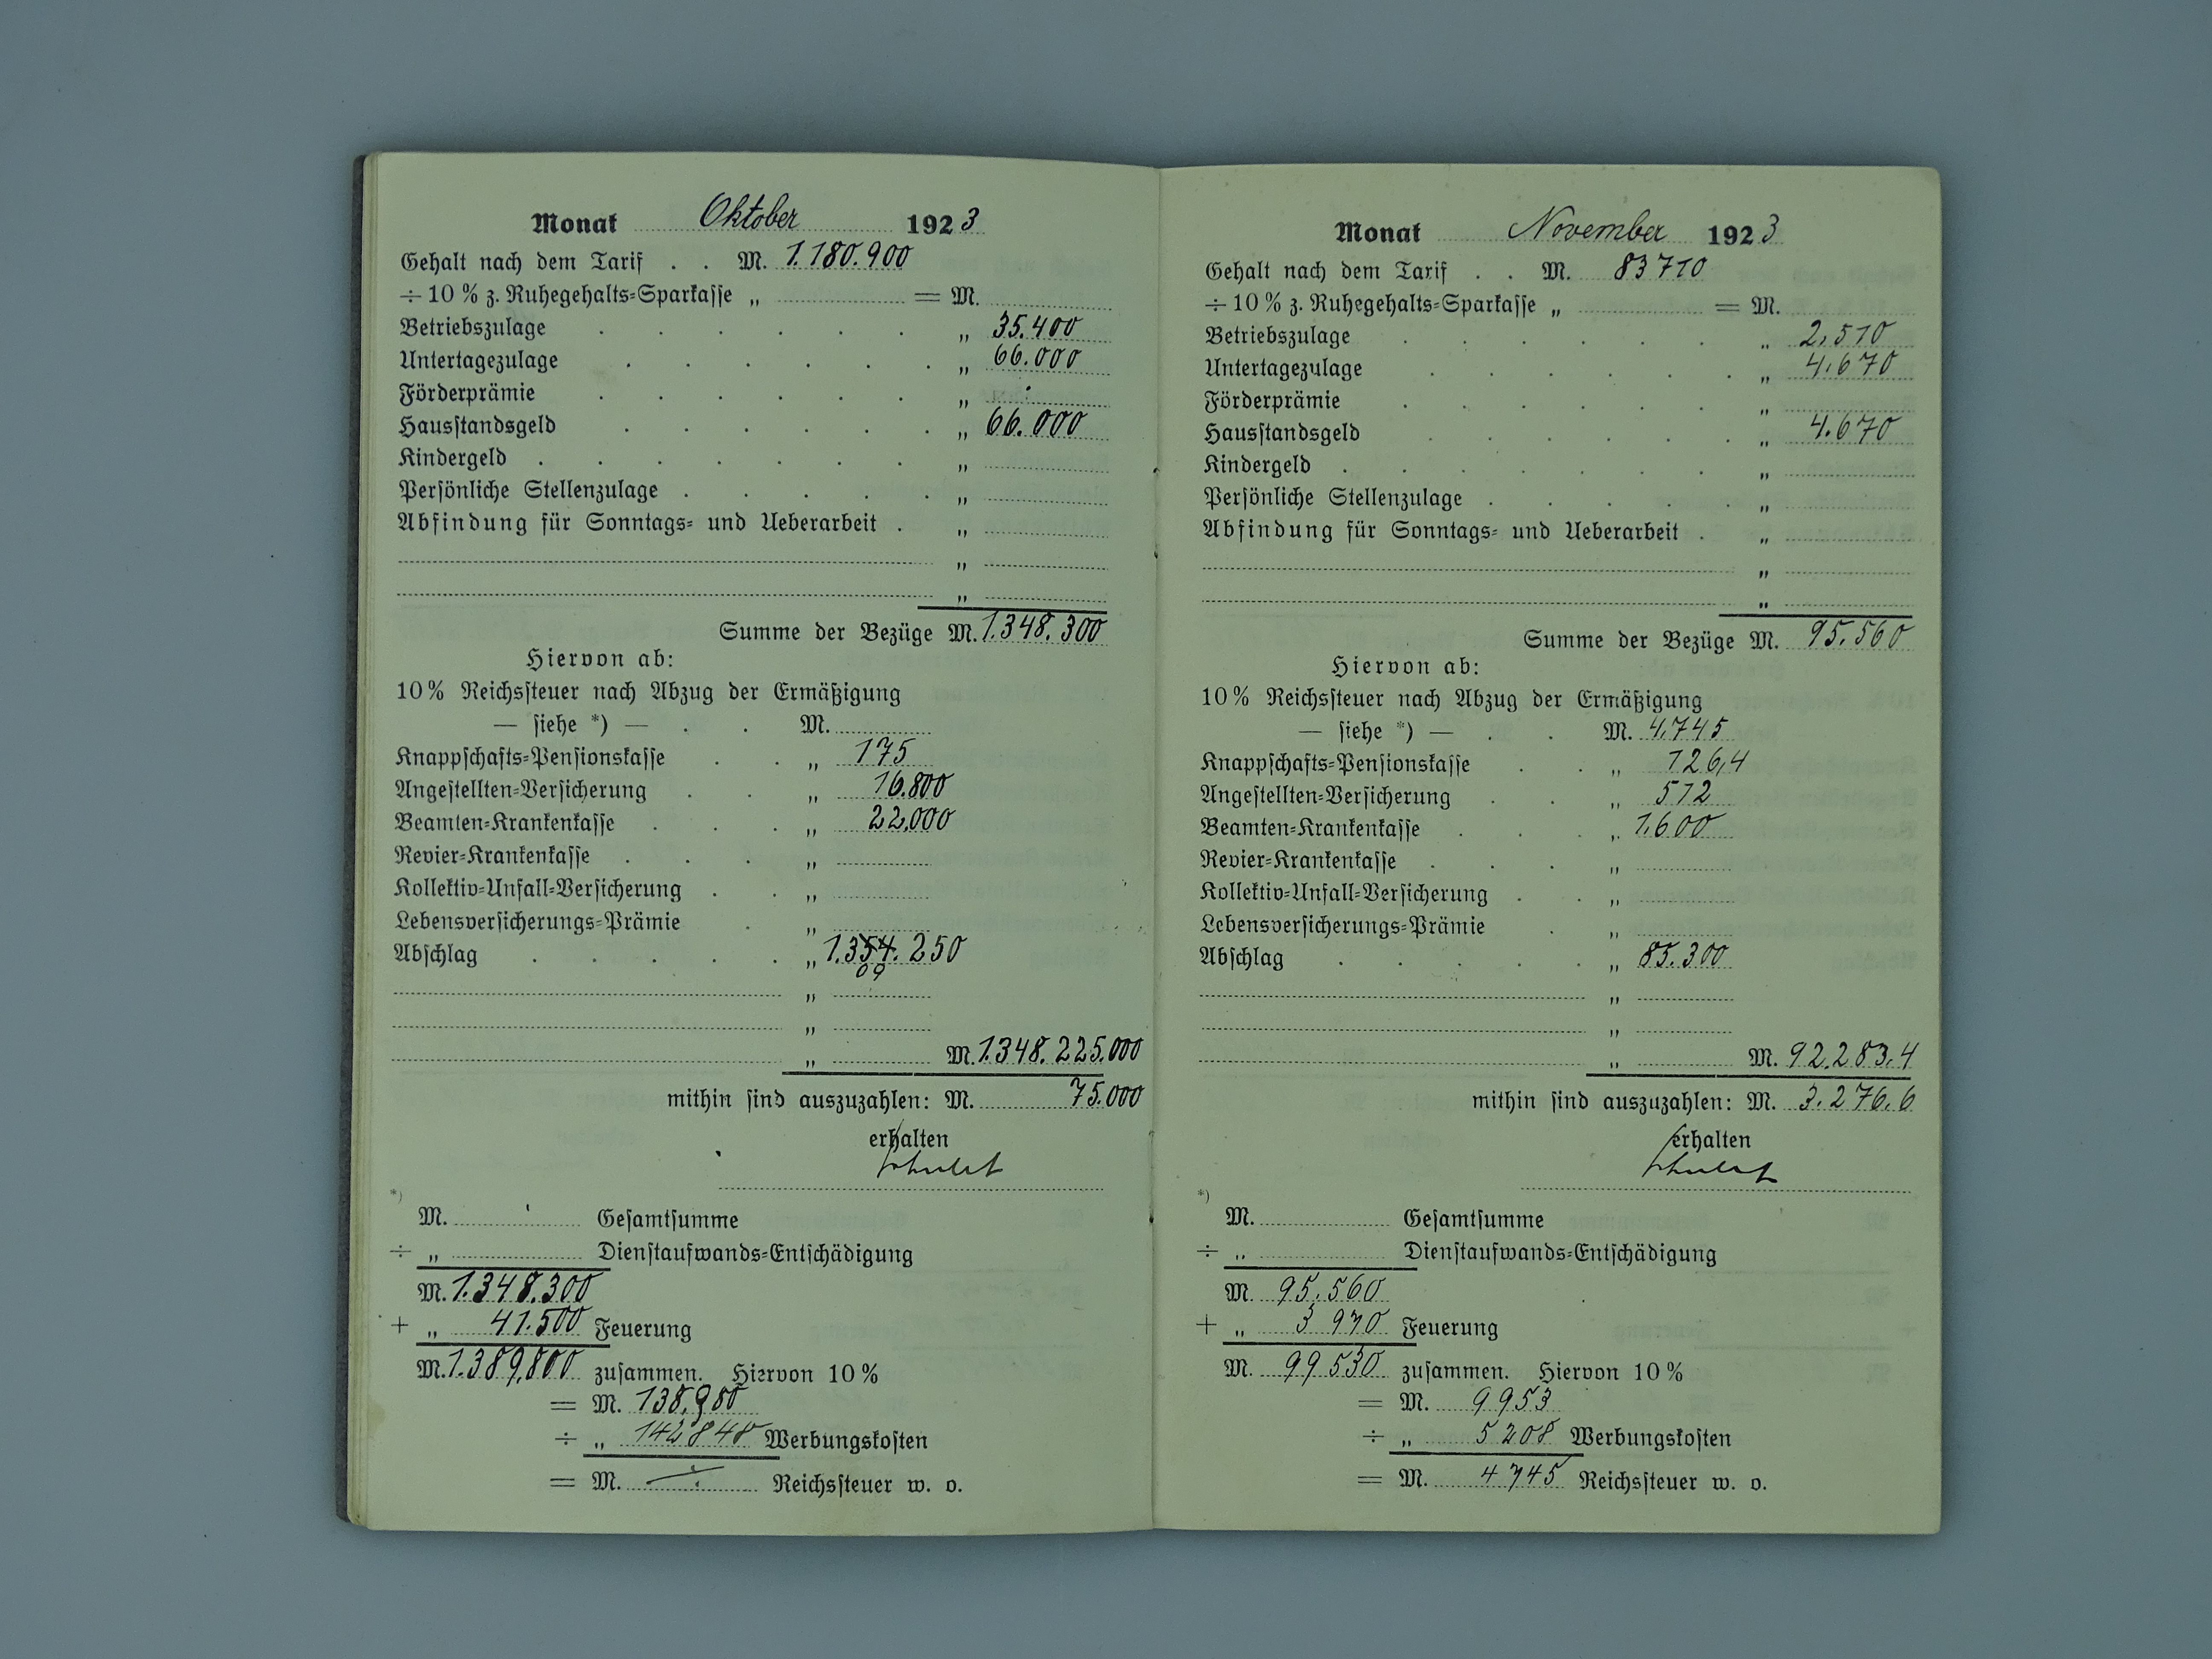 Monat Oktober 1923
Gehalt nach dem Tarif . . M. 1.180.900
÷ 10 % z. Ruhegehalts=Sparkasse „ = M.
Betriebszulage „ 35.400
Untertagezulage „ 66.000
Förderprämie „
Hausstandsgeld „ 66.000
Kindergeld „
Persönliche Stellenzulage „
Abfindung für Sonntags= und Ueberarbeit . „
„
„
Summe der Bezüge M. 1.348.300
Hiervon ab:
10 % Reichssteuer nach Abzug der Ermäßigung
— siehe *) — . . M.
Knappschafts=Pensionskasse „ 175
Angestellten=Versicherung „ 16.800
Beamten=Krankenkasse „ 22.000
Revier=Krankenkasse „
Kollektiv=Unfall=Versicherung „
Lebensversicherungs=Prämie „
Abschlag „ 1.354.250
09
„
„
„ M. 1.348.225.000
mithin sind auszuzahlen: M. 75.000
erhalten
*)
M. Gesamtsumme
÷ „ Dienstaufwands=Entschädigung
M. 1.348.300
+ „ 41.500 Feuerung
M. 1.389.800 zusammen. Hiervon 10 %
= M. 138.980
÷ „ 142848 Werbungskosten
= M. Reichssteuer w. o.
Monat November 1923
Gehalt nach dem Tarif . . M. 83710
÷ 10 % z. Ruhegehalts=Sparkasse „ = M.
Betriebszulage „ 2.510
Untertagezulage „ 4.670
Förderprämie „
Hausstandsgeld „ 4.670
Kindergeld „
Persönliche Stellenzulage „
Abfindung für Sonntags= und Ueberarbeit . „
„
„
Summe der Bezüge M. 95.560
Hiervon ab:
10 % Reichssteuer nach Abzug der Ermäßigung
— siehe *) — . . M. 4.745
Knappschafts=Pensionskasse „ 126,4
Angestellten=Versicherung „ 512
Beamten=Krankenkasse „ 1.600
Revier=Krankenkasse „
Kollektiv=Unfall=Versicherung „
Lebensversicherungs=Prämie „
Abschlag „ 85.300
„
„
„ M. 92.283,4
mithin sind auszuzahlen: M. 3.276,6
erhalten
*)
M. Gesamtsumme
÷ „ Dienstaufwands=Entschädigung
M. 95.560
+ „ 3970 Feuerung
M. 99530 zusammen. Hiervon 10 %
= M. 9953
÷ „ 5208 Werbungskosten
= M. 4745 Reichssteuer w. o.